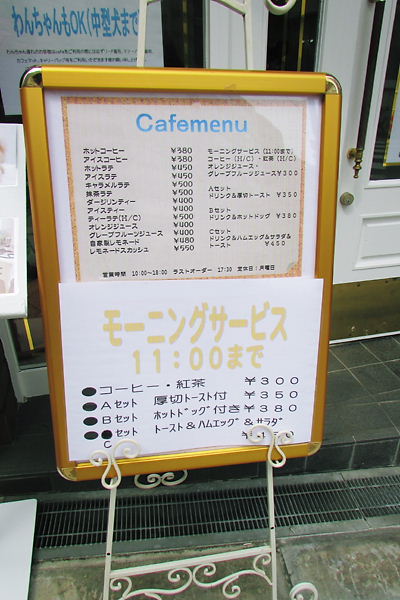 わんちゃんもOK(中型犬まで
Cafemenu
ホットコーヒー ¥380
アイスコーヒー ¥380
ホットラテ ¥450
アイスラテ ¥450
キャラメルラテ ¥500
抹茶ラテ ¥500
ダージリンティー ¥400
アイスティー ¥400
ティーラテ(H/C) ¥500
オレンジジュース ¥400
グレープフルーツジュース ¥400
自家製レモネード ¥480
レモネードスカッシュ ¥550
モーニングサービス(11:00まで)
コーヒー(H/C)・紅茶(H/C)
オレンジジュース・
グレープフルーツジュース¥300
Aセット
ドリンク&厚切トースト ¥350
Bセット
ドリンク&ホットドッグ ¥380
Cセット
ドリンク&ハムエッグ&サラダ&
トースト ¥450
営業時間 10:00~18:00 ラストオーダー 17:30 定休日:月曜日
モーニングサービス
11:00まで
●コーヒー・紅茶 ¥300
●Aセット 厚切トースト付 ¥350
●Bセット ホットドッグ付き ¥380
●●セット トースト&ハムエッグ&サラダ
C